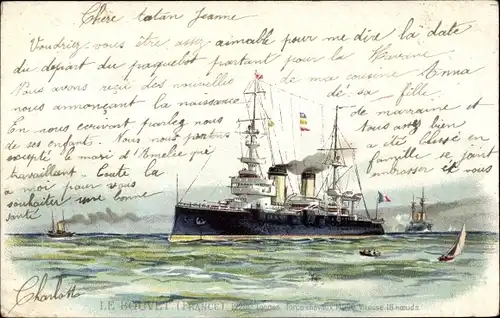 Chère tatan Jeanne
Voudriez vous être assez aimable pour me dire la date
du départ du paquebot partant pour la Havane
Nous avons reçu des nouvelles de ma cousine Anna
nous annonçant la naissance de sa fille.
En nous ecrivant parlez nous de marraine et
de ses enfant. Nous nous portons tous bien
excepté le mari d'Amelie qui a été blessé en
travaillant. Toute la famille se joint
a moi pour vous embrasser et vous
souhaiter une bonne
santé
Charlotte
LE BOUVET (FRANCE) tonnes, force chevaux Vitesse 18 nœuds